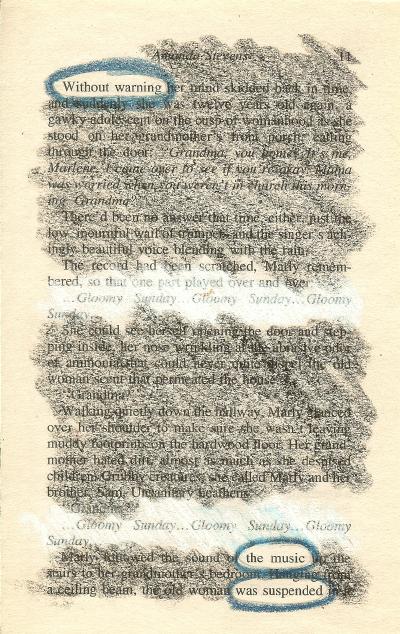 Amanda Stevens 11
Without warning her mind skidded back in time,
and suddenly she was twelve years old again, a
gawky adolescent on the cusp of womanhood as she
stood on her grandmother's front porch calling
through the door: "Grandma, you home? It's me,
Marlene. I came over to see if you're okay. Mama
was worried when you weren't in church this morn-
ing. Grandma?"
There'd been no answer that time, either, just the
low, mournful wail of trumpets and the singer's ach-
ingly beautiful voice blending with the rain.
The record had been scratched, Marly remem-
bered, so that one part played over and over
...Gloomy Sunday...Gloomy Sunday...Gloomy
Sunday...
She could see herself opening the door and step-
ping inside, her nose wrinkling at the abrasive odor
of ammonia that could never quite dispel the old
woman scent that permeated the house.
"Grandma?"
Walking quietly down the hallway, Marly glanced
over her shoulder to make sure she wasn't leaving
muddy footprints on the hardwood floor. Her grand-
mother hated dirt, almost as much as she despised
children. Grubby creatures, she called Marly and her
brother, Sam. Unsanitary heathens.
"Grandma?"
...Gloomy Sunday...Gloomy Sunday...Gloomy
Sunday...
Marly followed the sound of the music up the
stairs to her grandmother's bedroom. Hanging from
a ceiling beam, the old woman was suspended in